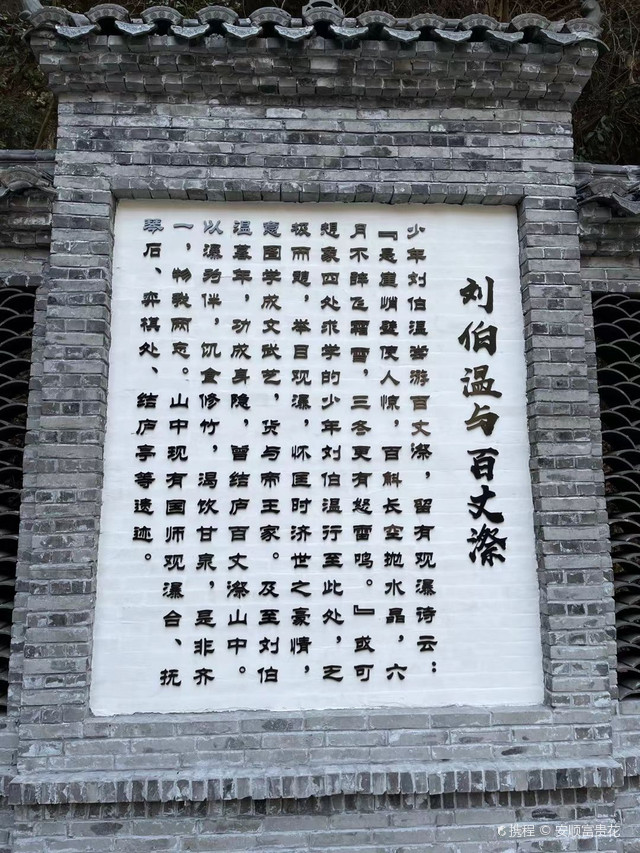 刘伯温与百丈漈
少年刘伯温尝游百丈漈，留有观瀑诗云：
『悬崖峭壁使人惊，百斛长空抛水晶，六
月不辞飞霜雪，三冬更有怒雷鸣。』或可
想象四处求学的少年刘伯温行至此处，乏
极而憩，举目观瀑，怀匡时济世之豪情，
意图学成文武艺，货与帝王家。及至刘伯
温暮年，功成身隐，曾结庐百丈漈山中。
以瀑为伴，饥食修竹，渴饮甘泉，是非齐
一，物我两忘。山中现有国师观瀑台、抚
琴石、弈棋处、结庐亭等遗迹。
携程 © 安顺富贵花